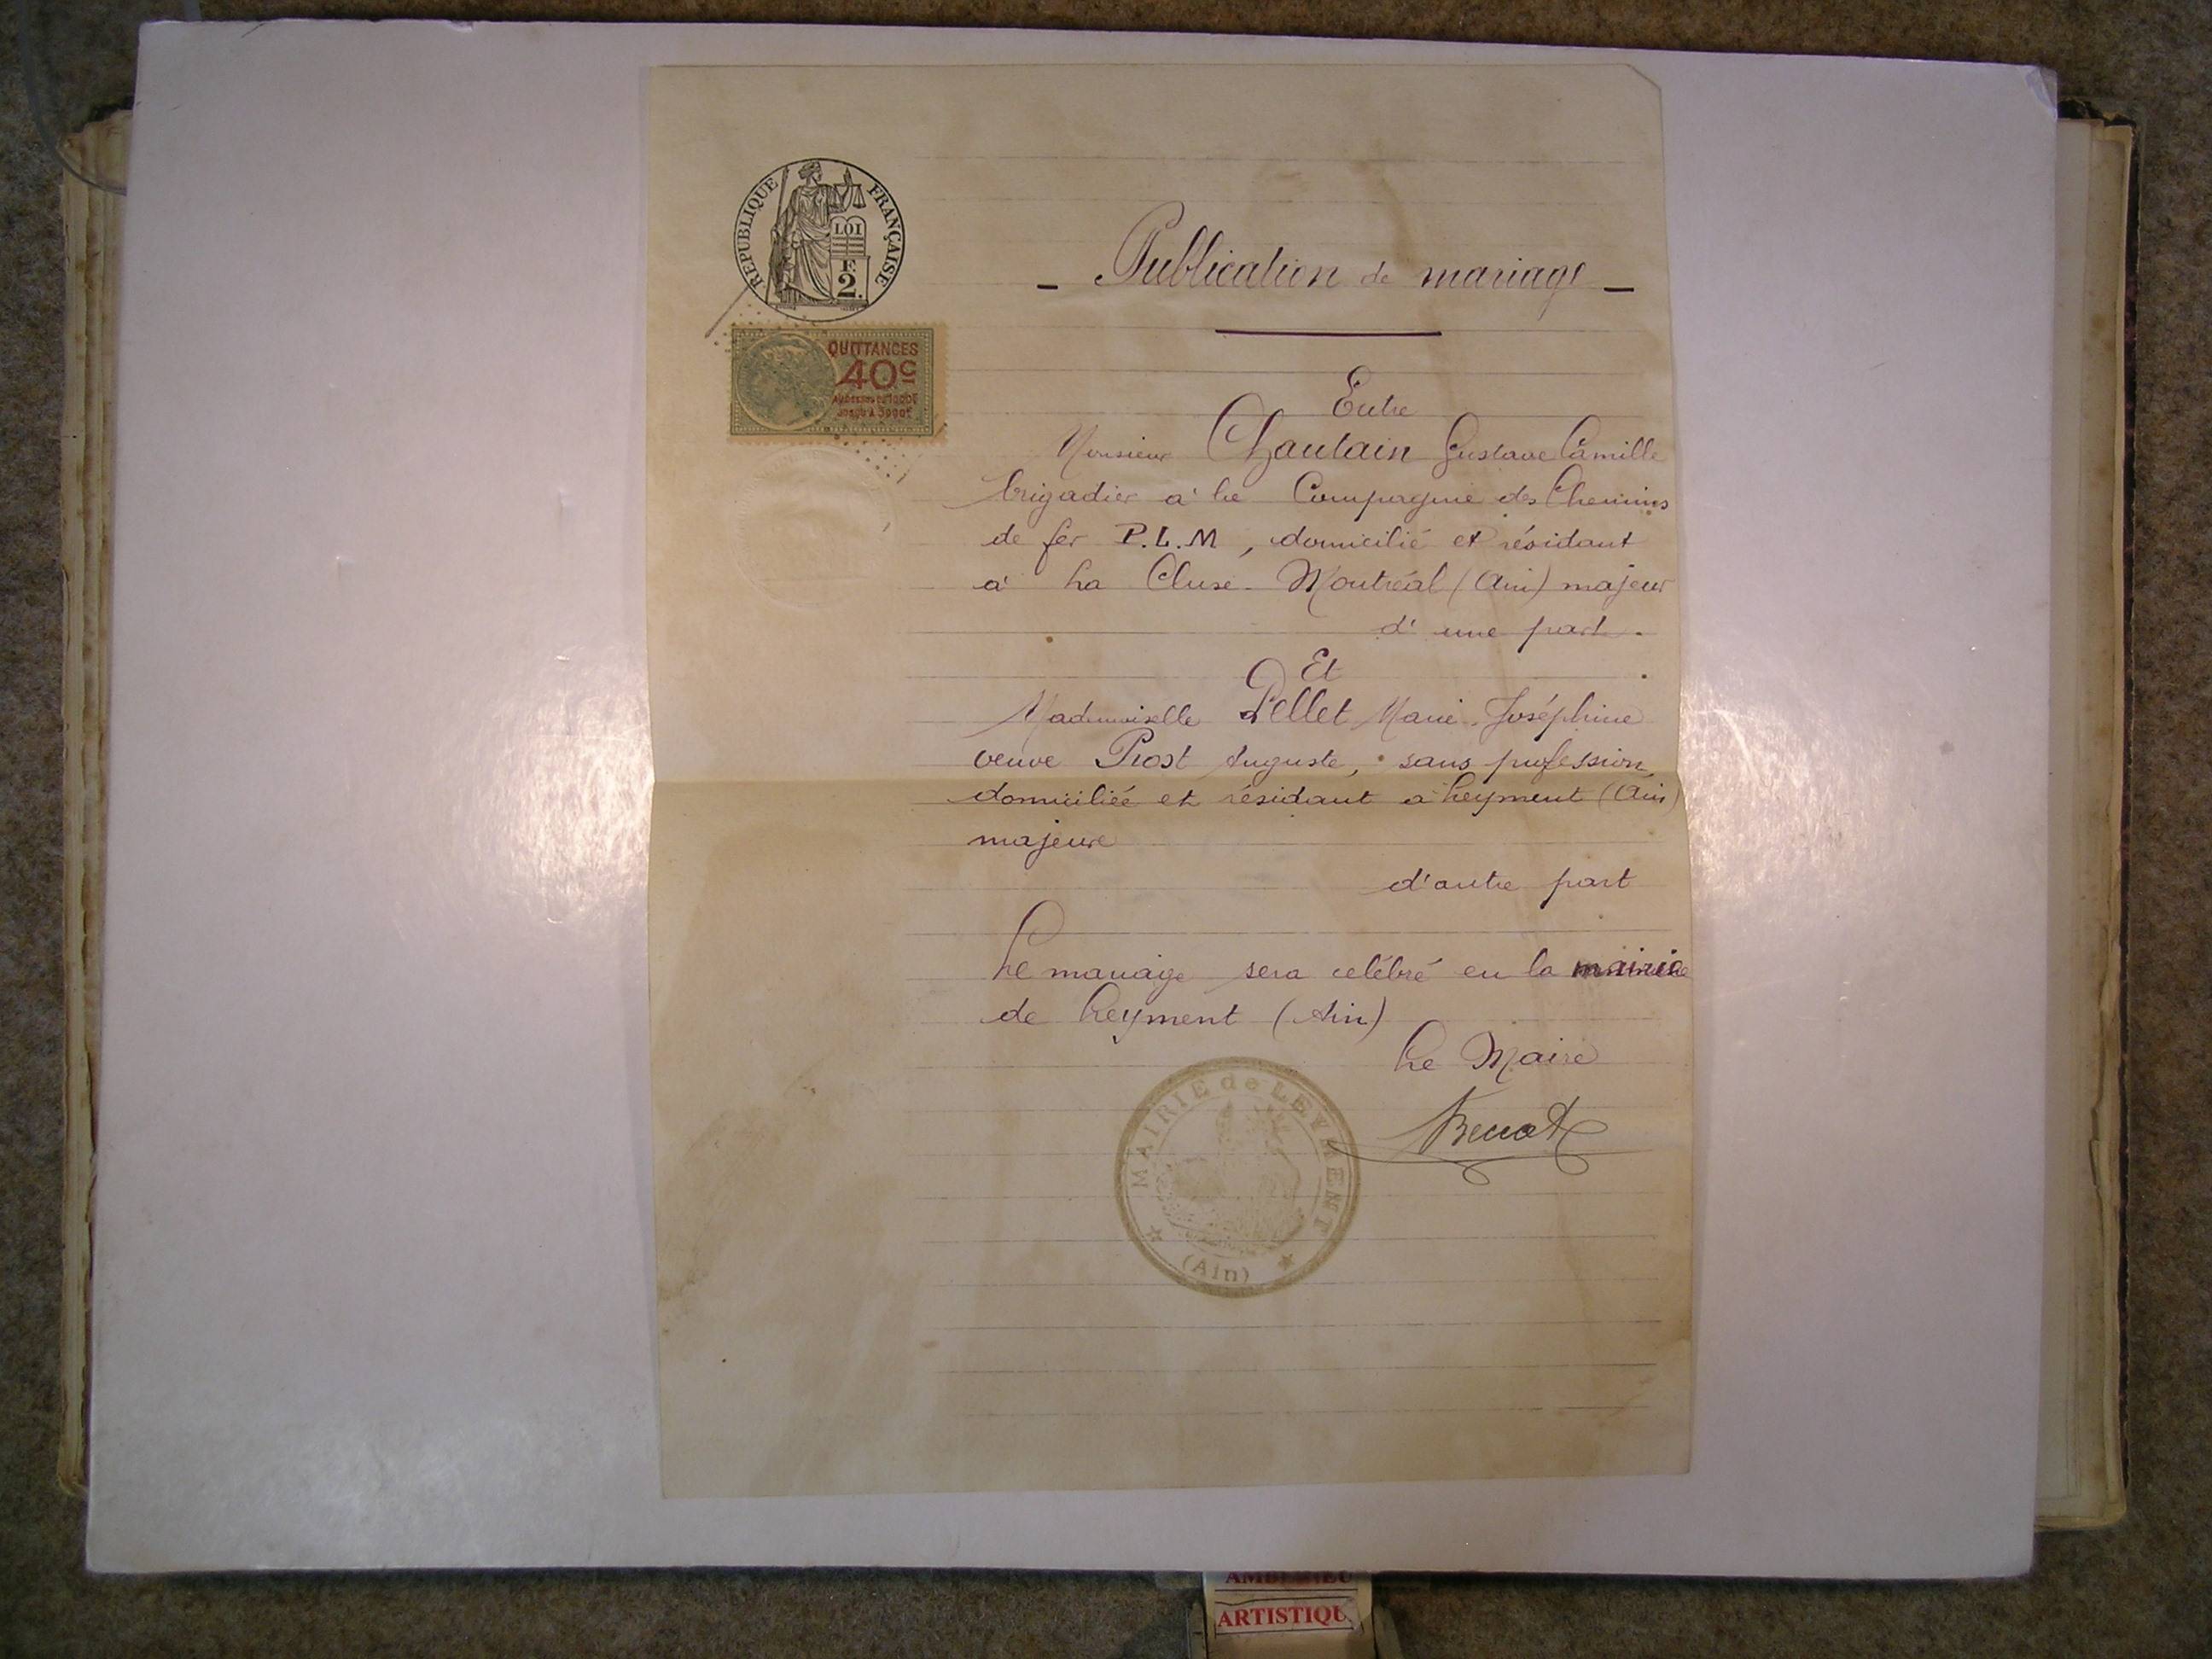 RÉPUBLIQUE FRANÇAISE
LOI
F
2.
QUITTANCES
40c
AU DESSUS DE 1000F
JUSQU'A 3000F
- Publication de mariage -
Entre
Monsieur Chautain Gustave Camille
brigadier à la Compagnie des Chemins
de fer P.L.M, domicilié et résidant
à La Cluse-Montréal (Ain) majeur
d'une part.
Et
Mademoiselle Pellet Marie-Joséphine
veuve Prost Auguste, sans profession,
domiciliée et résidant à Leyment (Ain)
majeure
d'autre part
Le mariage sera celébré en la mairie
de Leyment (Ain)
Le Maire
MAIRIE de LEYMENT
(Ain)
ARTISTIQU